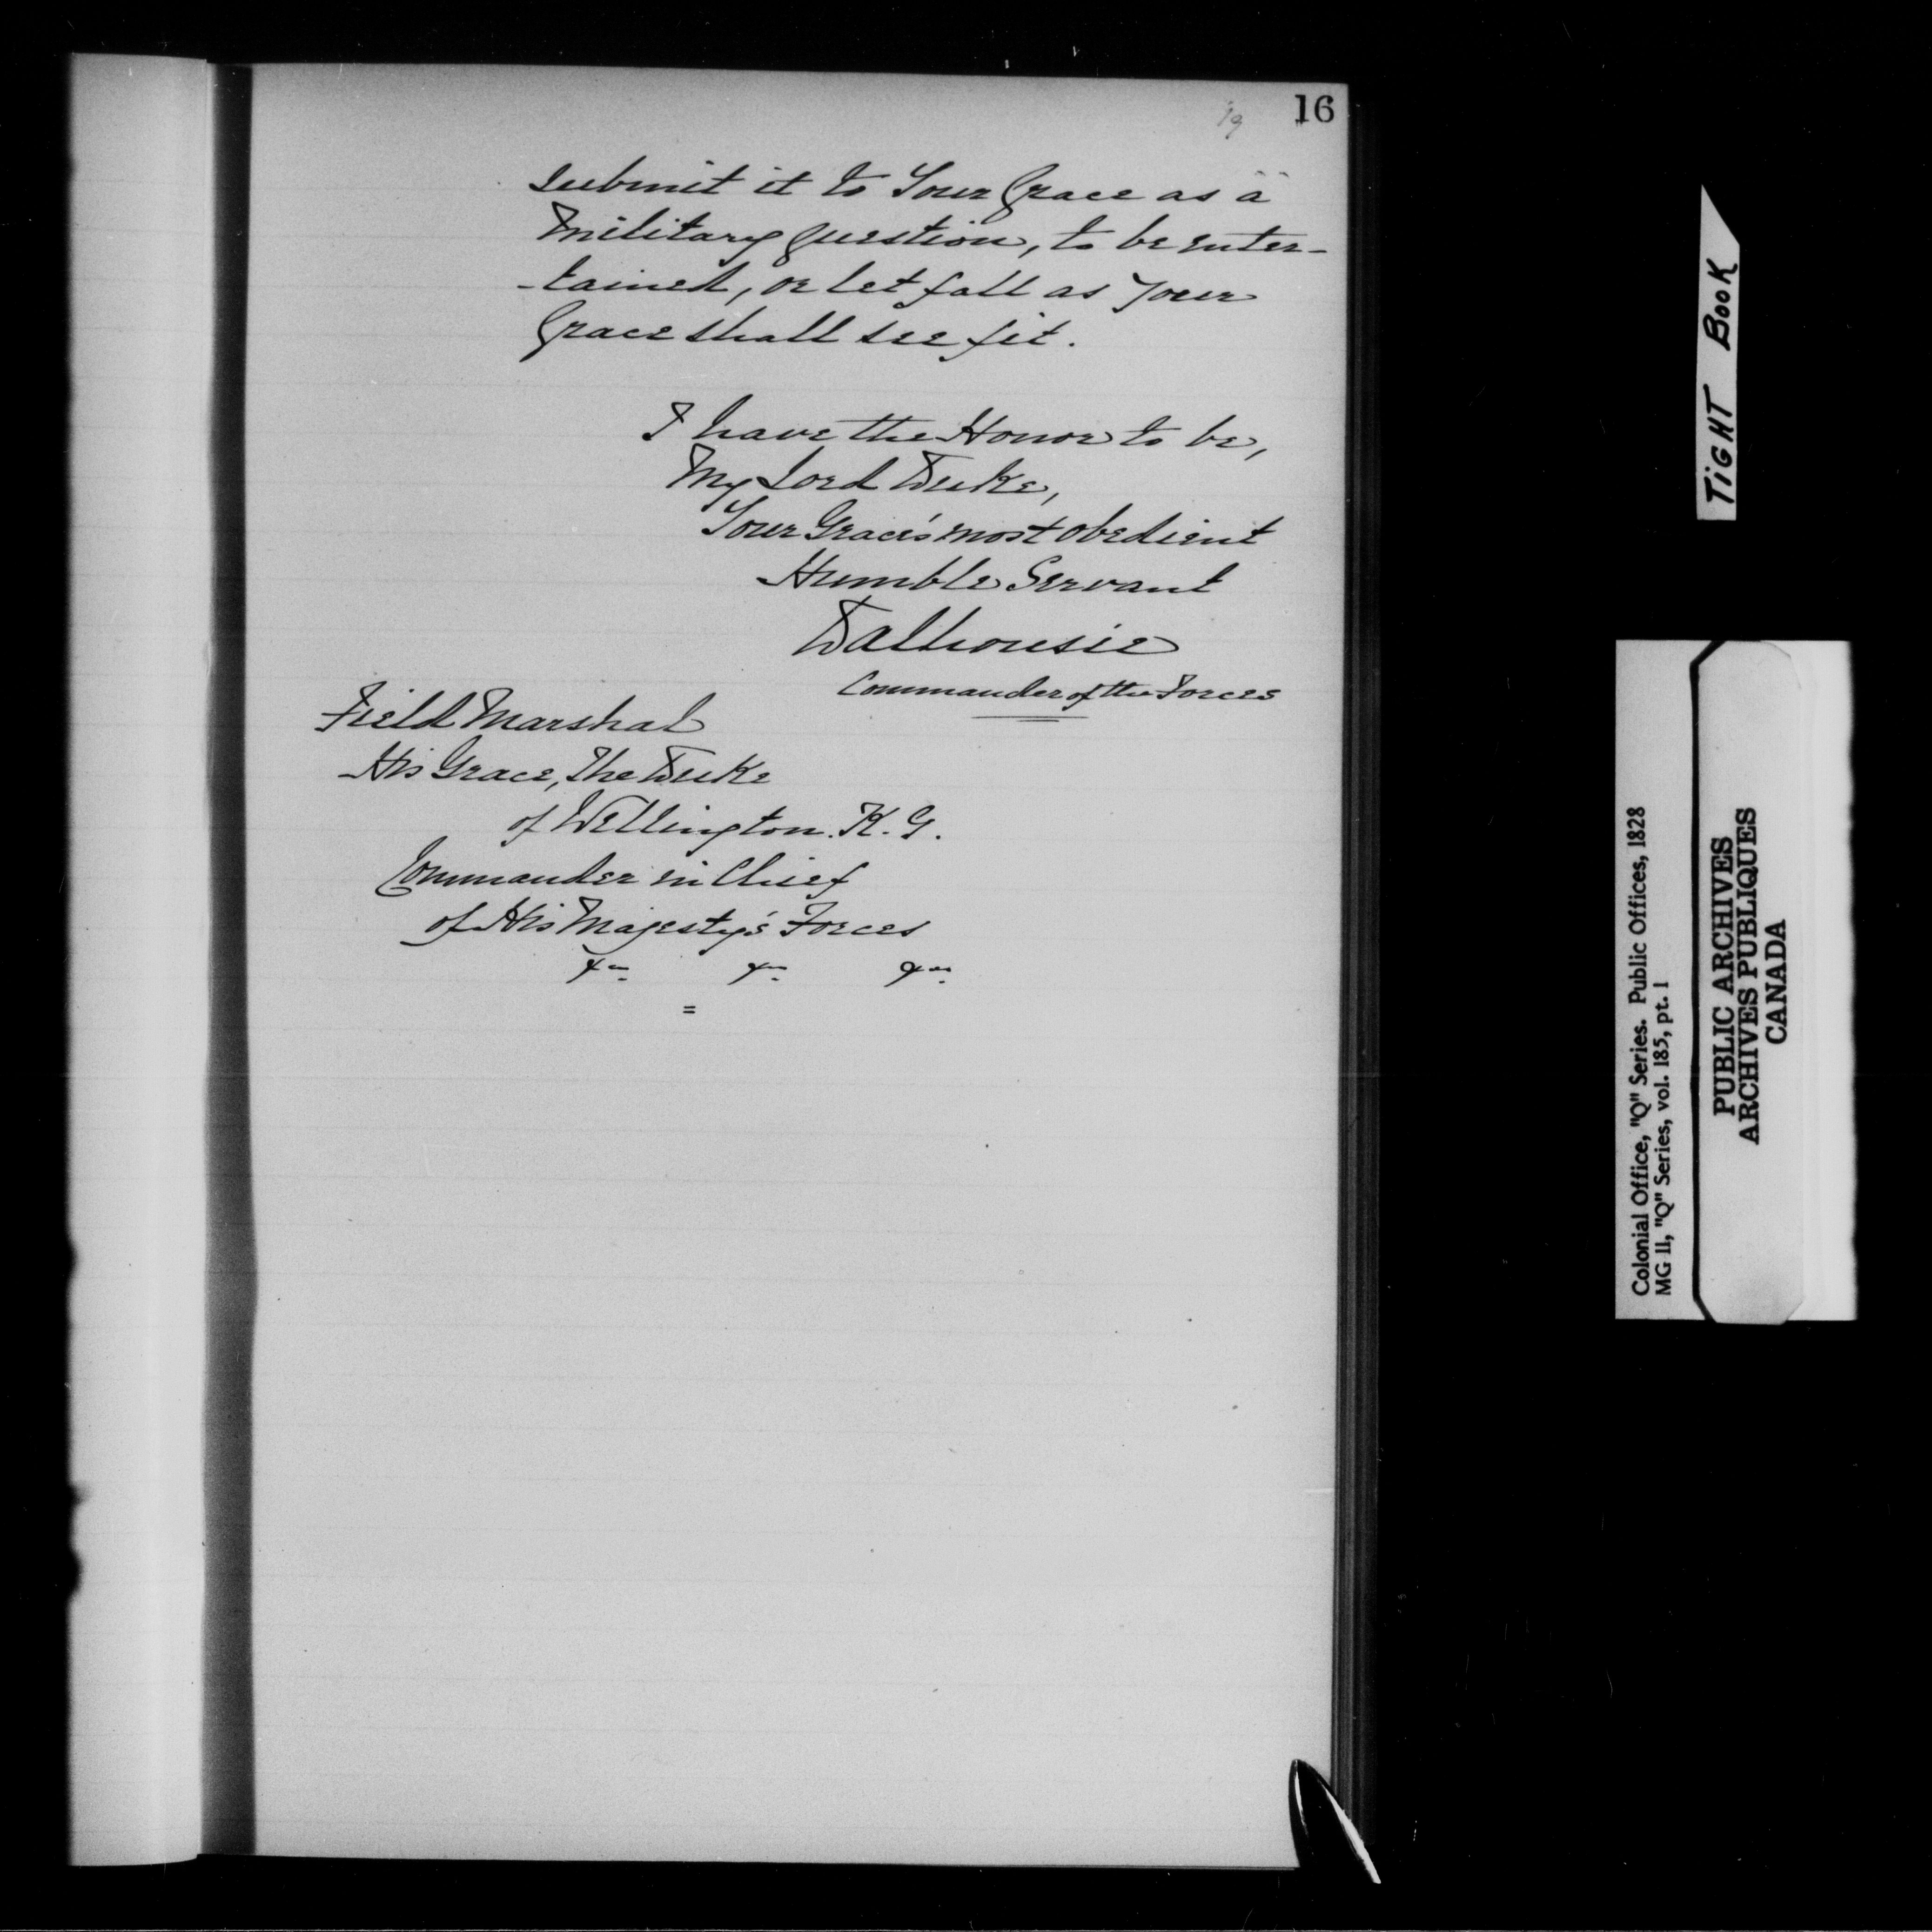 16
19
submit it to Your Grace as a
Military question, to be enter-
-tained, or let fall as Your
Grace shall see fit.
I have the Honor to be,
My Lord Duke,
Your Grace's most obedient
Humble Servant
Dalhousie
Commander of the Forces
Field Marshal
His Grace, The Duke
of Wellington. K. G.
Commander in Chief
of His Majesty's Forces
&c. &c. &c.
=
TIGHT BOOK
Colonial Office, "Q" Series. Public Offices, 1828
MG 11, "Q" Series, vol. 185, pt. 1
PUBLIC ARCHIVES
ARCHIVES PUBLIQUES
CANADA